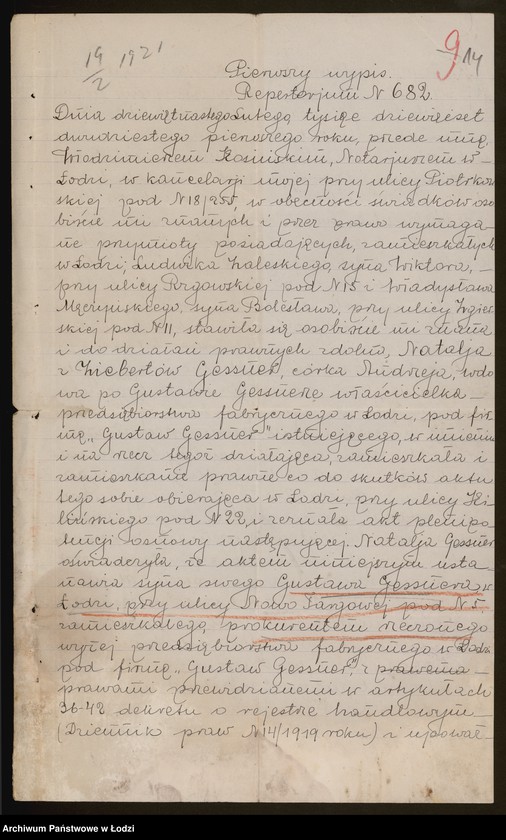 19/2 1921
9 14
Pierwszy wypis.
Repertorjum N 682.
Dnia dziewiętnastego Lutego tysiąc dziewięćset
dwudziestego pierwszego roku, przede mną,
Włodzimierzem Kosińskim, Notarjuszem w
Łodzi, w kancelarji mojej przy ulicy Piotrkow
skiej pod N 18/255, w obecności świadków oso
biście mi znanych i przez prawo wymaga
ne przymioty posiadających, zamieszkałych
w Łodzi; Ludwika Zaleskiego, syna Wiktora, –
przy ulicy Rzgowskiej pod N 15 i Władysława
Męczyńskiego, syna Bolesława, przy ulicy Zgier
skiej pod N 11, stawiła się osobiście mi znana
i do działań prawnych zdolna, Natalja
z Ziebertów Gessner, córka Andrzeja, wdo
wa po Gustawie Gessnerze właścicielka –
przedsiębiorstwa fabrycznego w Łodzi, pod fir
mą „Gustaw Gessner" istniejącego, w imieniu
i na rzecz tegoż działająca, zamieszkała i
zamieszkanie prawne co do skutków aktu
tego sobie obierająca w Łodzi, przy ulicy Ki
lińskiego pod N 22, i zeznała akt plenipo
tencji osnowy następującej. Natalja Gessner
oświadczyła, że aktem niniejszym usta
nawia syna swego Gustawa Gessnera, w
Łodzi, przy ulicy Nowo Targowej pod N 5.
zamieszkałego, prokurentem rzeczonego
wyżej przedsiębiorstwa fabrycznego w Łodzi
pod firmą „Gustaw Gessner", z prawema –
prawami przewidzianemi w artykułach
36-42 dekretu o rejestrze handlowym –
(Dziennik praw N 14/1919 roku) i upoważ–
Archiwum Państwowe w Łodzi